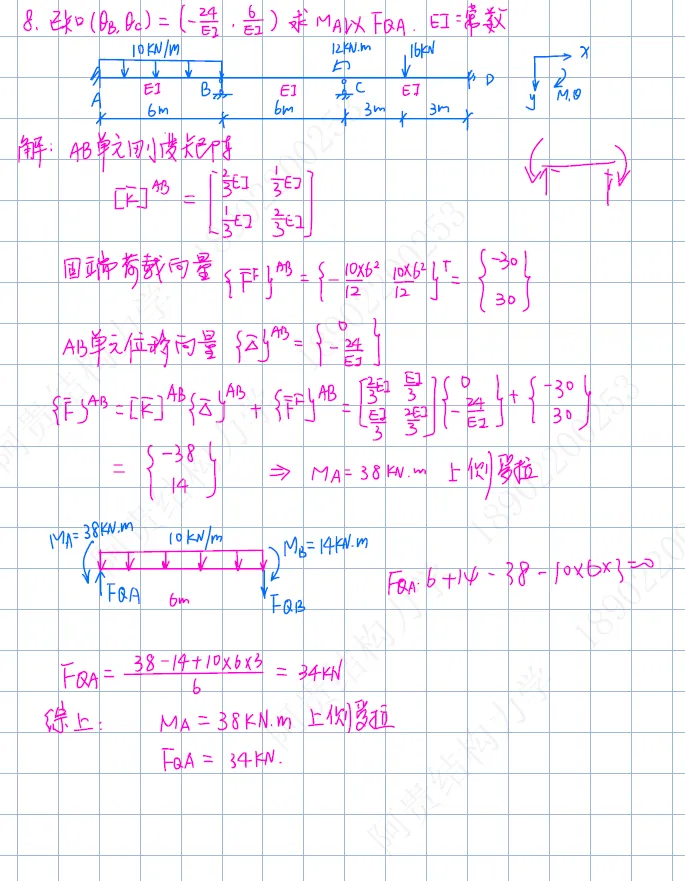 8. 已知(θB, θC) = (-24/EI, 6/EI) 求 MA 以及 FQA. EI=常数
10KN/m
12KN.m
16KN
x
A
EI
B
EI
C
EI
D
y
M,θ
6m
6m
3m
3m
解: AB单元刚度矩阵
[K̄]^AB = [2/3EI 1/3EI
1/3EI 2/3EI]
固端荷载向量 {F̄^F}^AB = {-10×6²/12 10×6²/12}^T = {-30
30}
AB单元位移向量 {Δ̄}^AB = {0
-24/EI}
{F̄}^AB = [K̄]^AB{Δ̄}^AB + {F̄^F}^AB = [2EI/3 EI/3
EI/3 2EI/3]{0
-24/EI} + {-30
30}
= {-38
14} ⇒ MA = 38KN.m 上侧受拉
MA=38KN.m
10KN/m
MB=14KN.m
FQA
6m
FQB
FQA·6+14-38-10×6×3=0
FQA = 38-14+10×6×3/6 = 34KN
综上: MA=38KN.m 上侧受拉
FQA = 34KN.
阿贵结构力学 18902200253